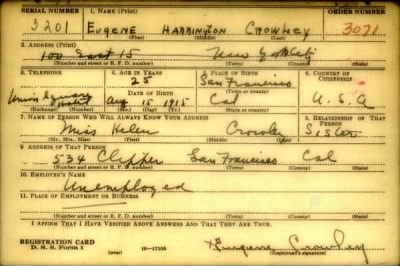 SERIAL NUMBER 1. NAME (Print) ORDER NUMBER
3201 EUGENE HARRINGTON CROWLEY 3071
(First) (Middle) (Last)
2. ADDRESS (Print)
100 East 15 New York City
(Number and street or R. F. D. number) (Town) (County) (State)
3. TELEPHONE 4. AGE IN YEARS 5. PLACE OF BIRTH 6. COUNTRY OF CITIZENSHIP
25 San Francisco
Union Square DATE OF BIRTH (Town or county)
Aug 15 1915 Cal U.S.A
(Exchange) (Number) (Mo.) (Day) (Yr.) (State or country)
7. NAME OF PERSON WHO WILL ALWAYS KNOW YOUR ADDRESS 8. RELATIONSHIP OF THAT PERSON
Miss Helen Crowley Sister
(Mr., Mrs., Miss) (First) (Middle) (Last)
9. ADDRESS OF THAT PERSON
534 Clipper San Francisco Cal
(Number and street or R. F. D. number) (Town) (County) (State)
10. EMPLOYER'S NAME
Unemployed
11. PLACE OF EMPLOYMENT OR BUSINESS
(Number and street or R. F. D. number) (Town) (County) (State)
I AFFIRM THAT I HAVE VERIFIED ABOVE ANSWERS AND THAT THEY ARE TRUE.
REGISTRATION CARD
D. S. S. Form 1 (over) 16—17105 Eugene Crowley
(Registrant's signature)